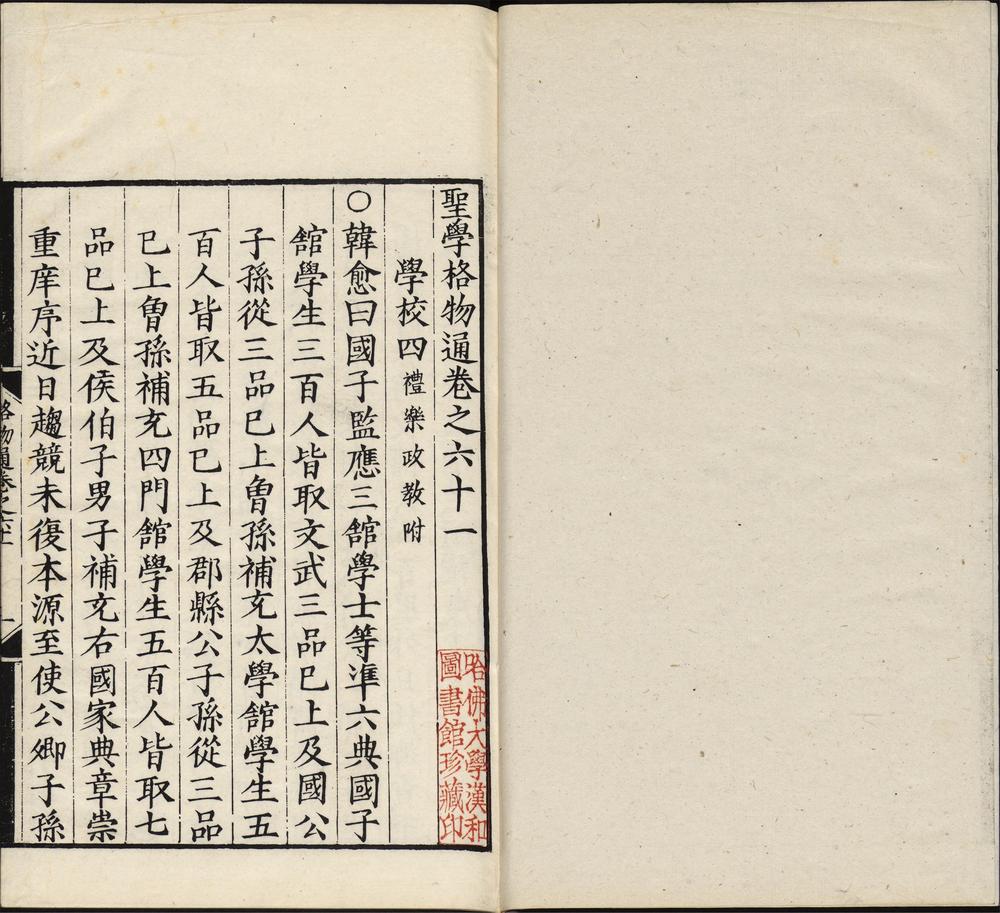 聖學格物通卷之六十一
學校四禮樂政教附
○韓愈曰國子監應三舘學士等準六典國子
舘學生三百人皆取文武三品已上及國公
子孫從三品已上曾孫補充太學舘學生五
百人皆取五品已上及郡縣公子孫從三品
已上曾孫補充四門舘學生五百人皆取七
品已上及侯伯子男子補充右國家典章崇
重庠序近日趨競未復本源至使公卿子孫
格物通卷之六十一
一
哈佛大學漢和
圖書館珍藏印